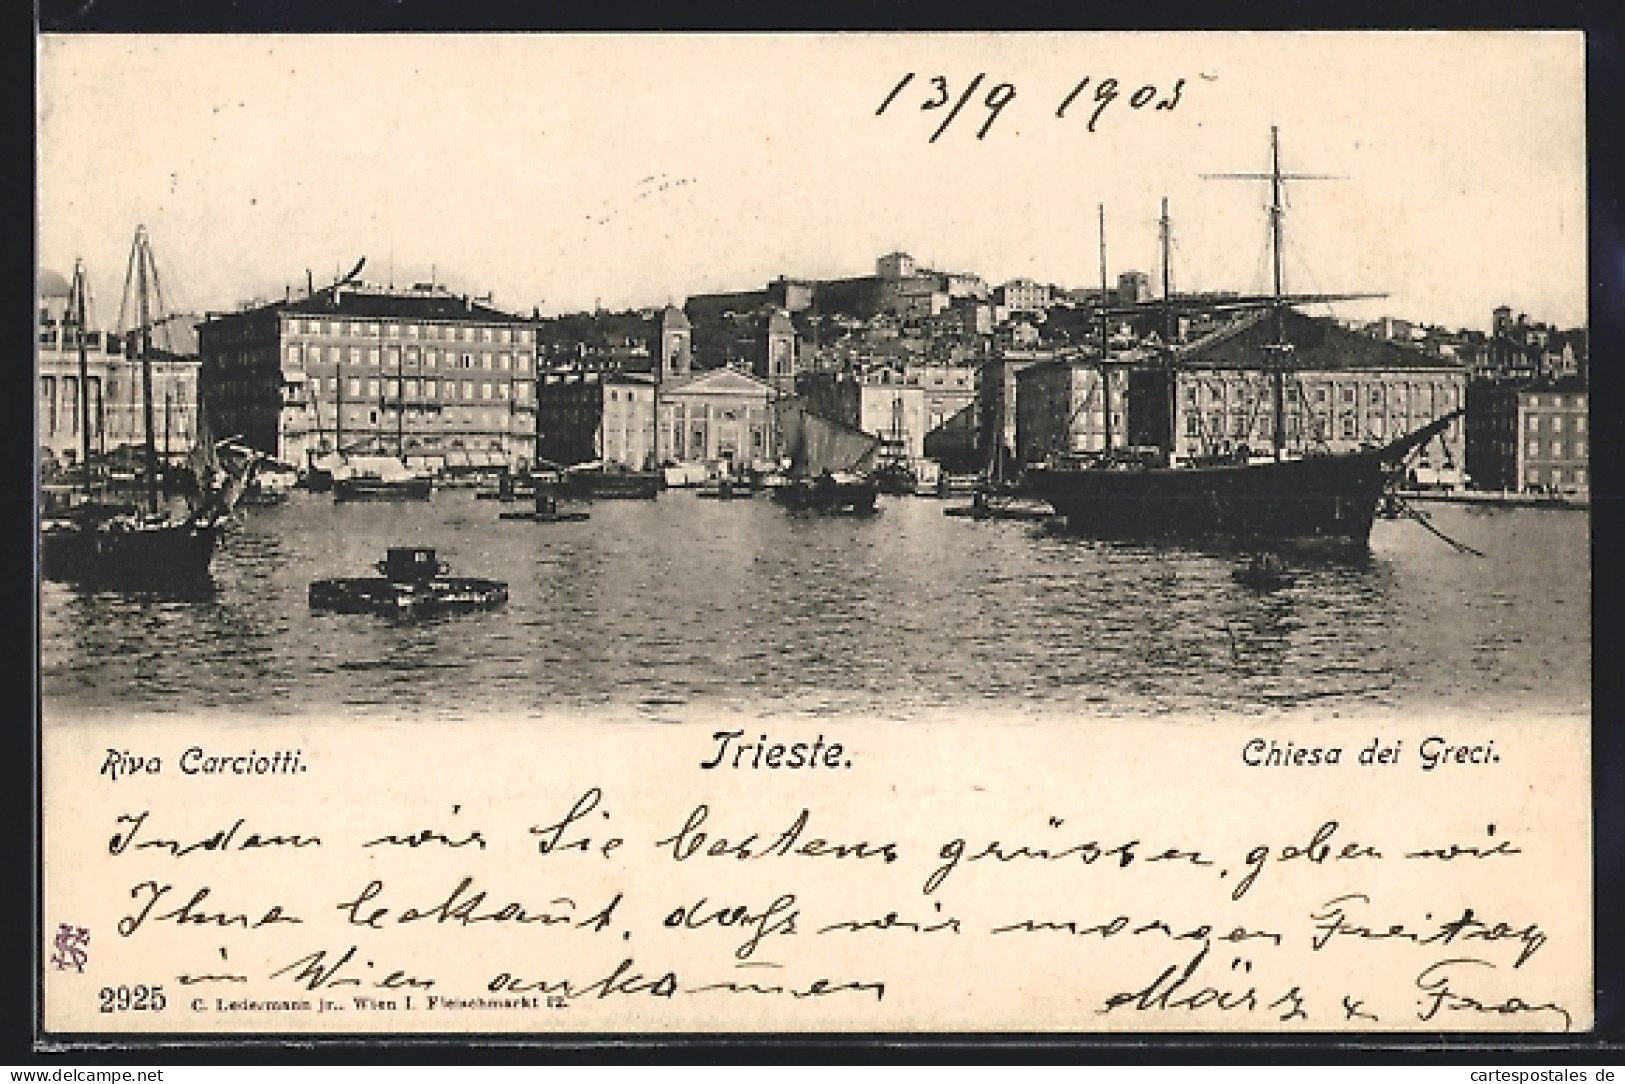 13/9 1905
Riva Carciotti.
Trieste.
Chiesa dei Greci.
Indem wir Sie bestens grüssen, geben wir
Ihnen bekannt, dass wir morgen Freitag
in Wien ankom̅en
März & Frau
2925 C. Ledermann jr., Wien I. Fleischmarkt 12.
cartespostales.de